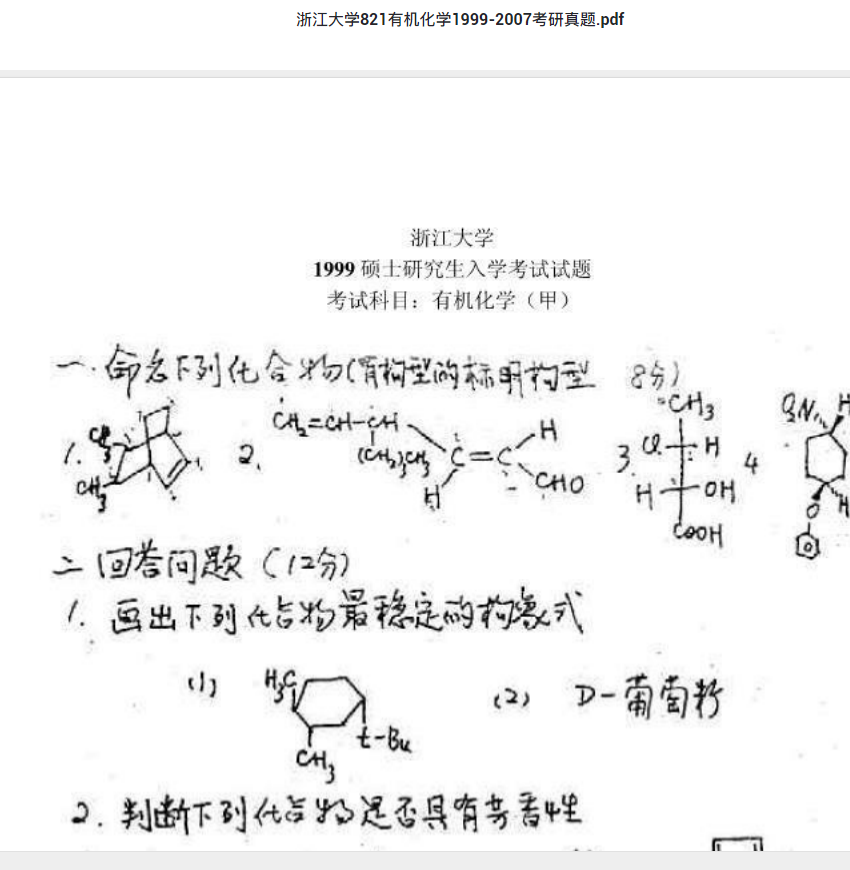 浙江大学821有机化学1999-2007考研真题.pdf
浙江大学
1999 硕士研究生入学考试试题
考试科目：有机化学（甲）
一. 命名下列化合物(有构型的标明构型 8分)
1. CH3 CH3
2. CH2=CH-CH (CH2)3CH3 C=C H H CHO
3 CH3 Cl H H OH COOH
4 O2N H O H
二 回答问题 (12分)
1. 画出下列化合物最稳定的构象式
(1) H3C CH3 t-Bu (2) D-葡萄糖
2. 判断下列化合物是否具有芳香性